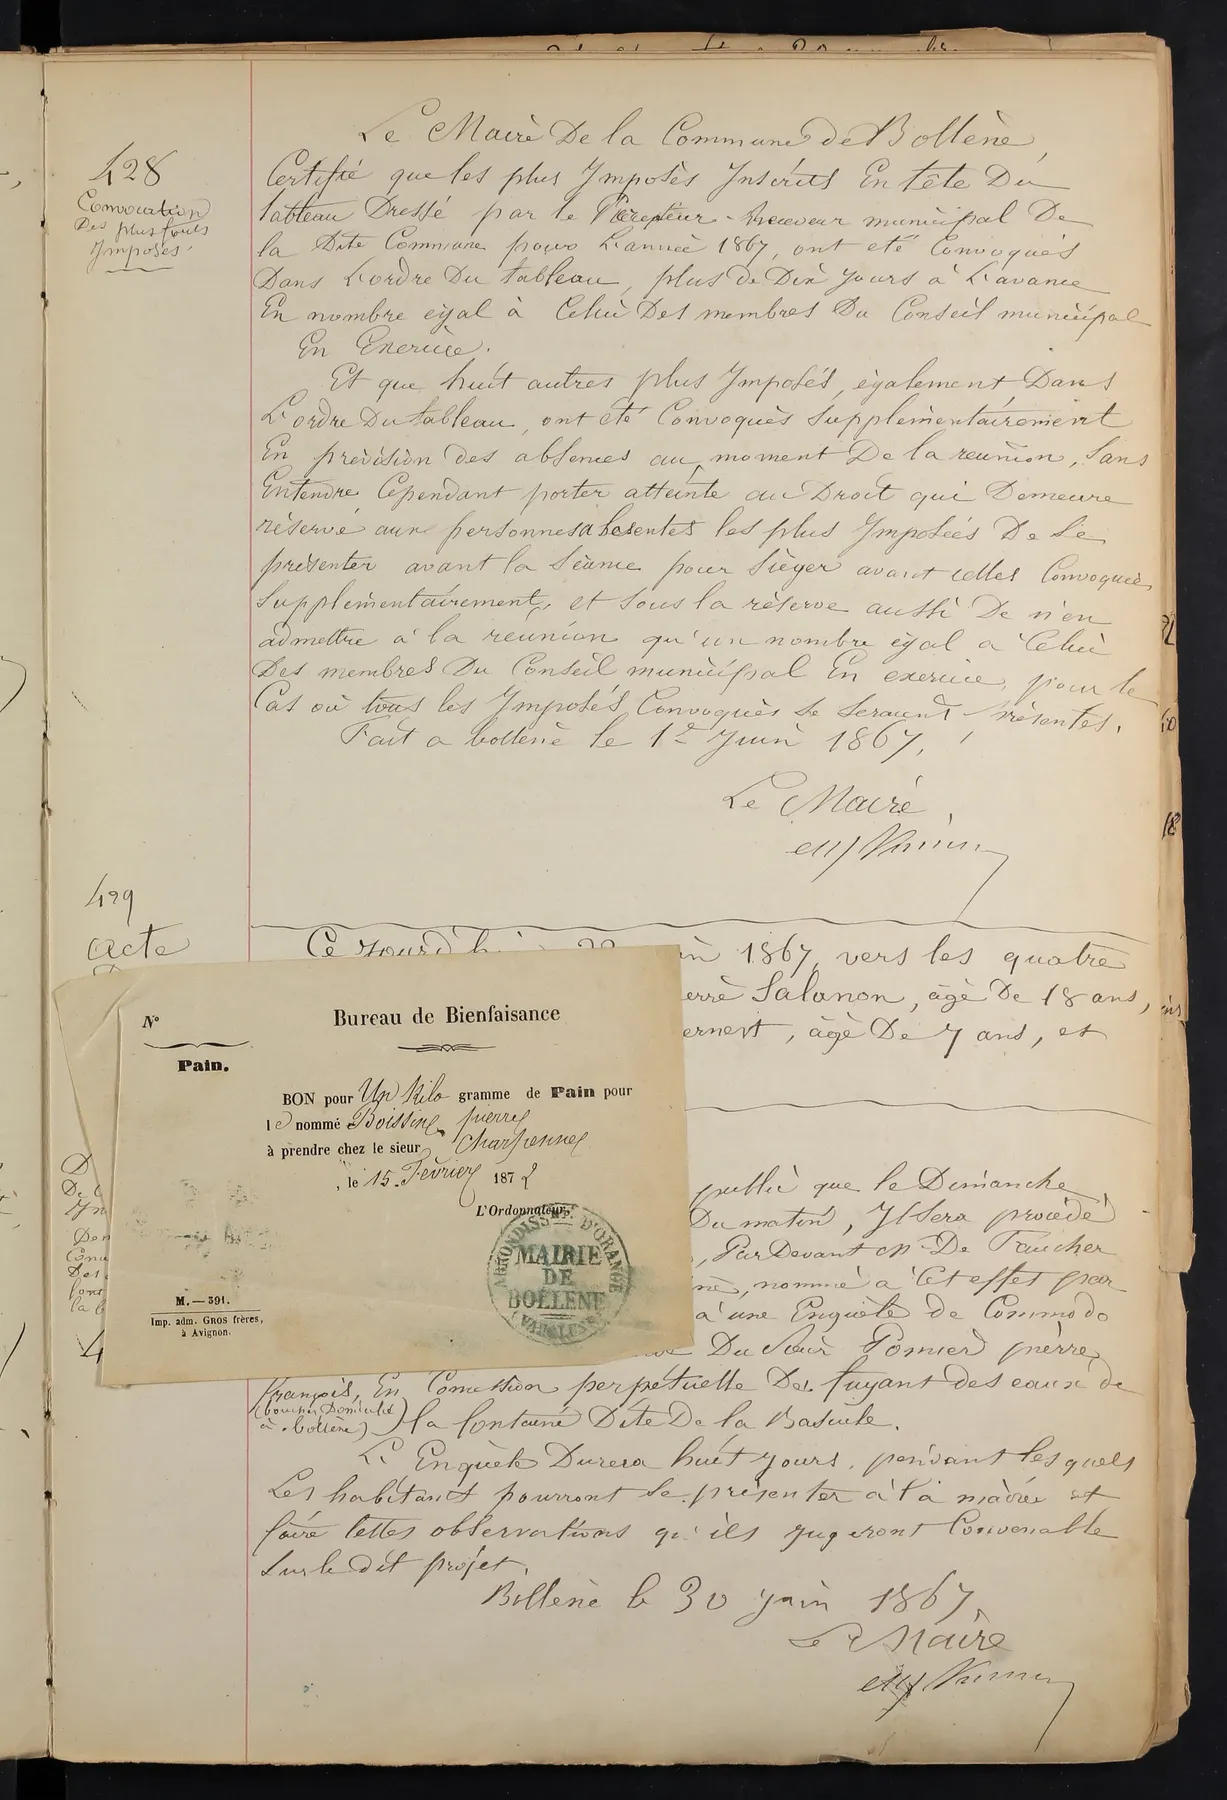 428
Convocation
Des plus forts
Imposés.
Le Maire De la Commune de Bollène,
Certifié que les plus Imposés Inscrits En tête Du
tableau Dressé par le Percepteur - Receveur municipal De
la Dite Commune pour L'année 1867, ont eté Convoqués
Dans L'ordre Du tableau, plus de Dix Jours à L'avance
En nombre égal à Celui Des membres Du Conseil municipal
En Exercice.
Et que huit autres plus Imposés, également Dans
L'ordre Du tableau, ont été Convoqués Supplémentairement
En prévision des absences au moment De la reunion, Sans
Entendre Cependant porter atteinte au Droit qui Demeure
réservé aux personnes absentes les plus Imposées De Se
présenter avant la Séance pour Siéger avant celles Convoquées
Supplémentairement, et sous la réserve aussi De n'en
admettre à la reunion qu'un nombre égal à Celui
Des membres Du Conseil municipal En exercice, pour le
Cas où tous les Imposés Convoqués Se Seraient présentés.
Fait a bollène le 1er Juin 1867,
Le Maire
429
Acte
Ce Jourd'hui 1867, vers les quatre
Salanon, âgé De 18 ans,
âgé De 7 ans, et
Nº
Pain.
Bureau de Bienfaisance
BON pour Un Kilo gramme de Pain pour
le nommé Boissin pierre
à prendre chez le sieur Charpenne
, le 15 Février 1872
L'Ordonnateur,
ARRONDISSMT. D'ORANGE
MAIRIE
DE
BOLLENE
(VAUCLUSE)
M.—391.
Imp. adm. GROS frères,
à Avignon.
public que le Dimanche
Du matin, Il Sera procédé
, Par Devant Mr De Faucher
nommé à Cet effet par
à une Enquête de Commodo
Du Sieur Pomier pierre
françois, En Concession perpétuelle Des fuyant des eaux de
(boucher Domicilié
à bollène)
la fontaine Dite De la Bascule.
L'Enquête Durera huit Jours, pendant les quels
Les habitants pourront Se présenter à la mairie et
faire telles observations qu'ils Jugeront Convenable
Sur le dit projet.
Bollène le 30 Juin 1867
Le Maire